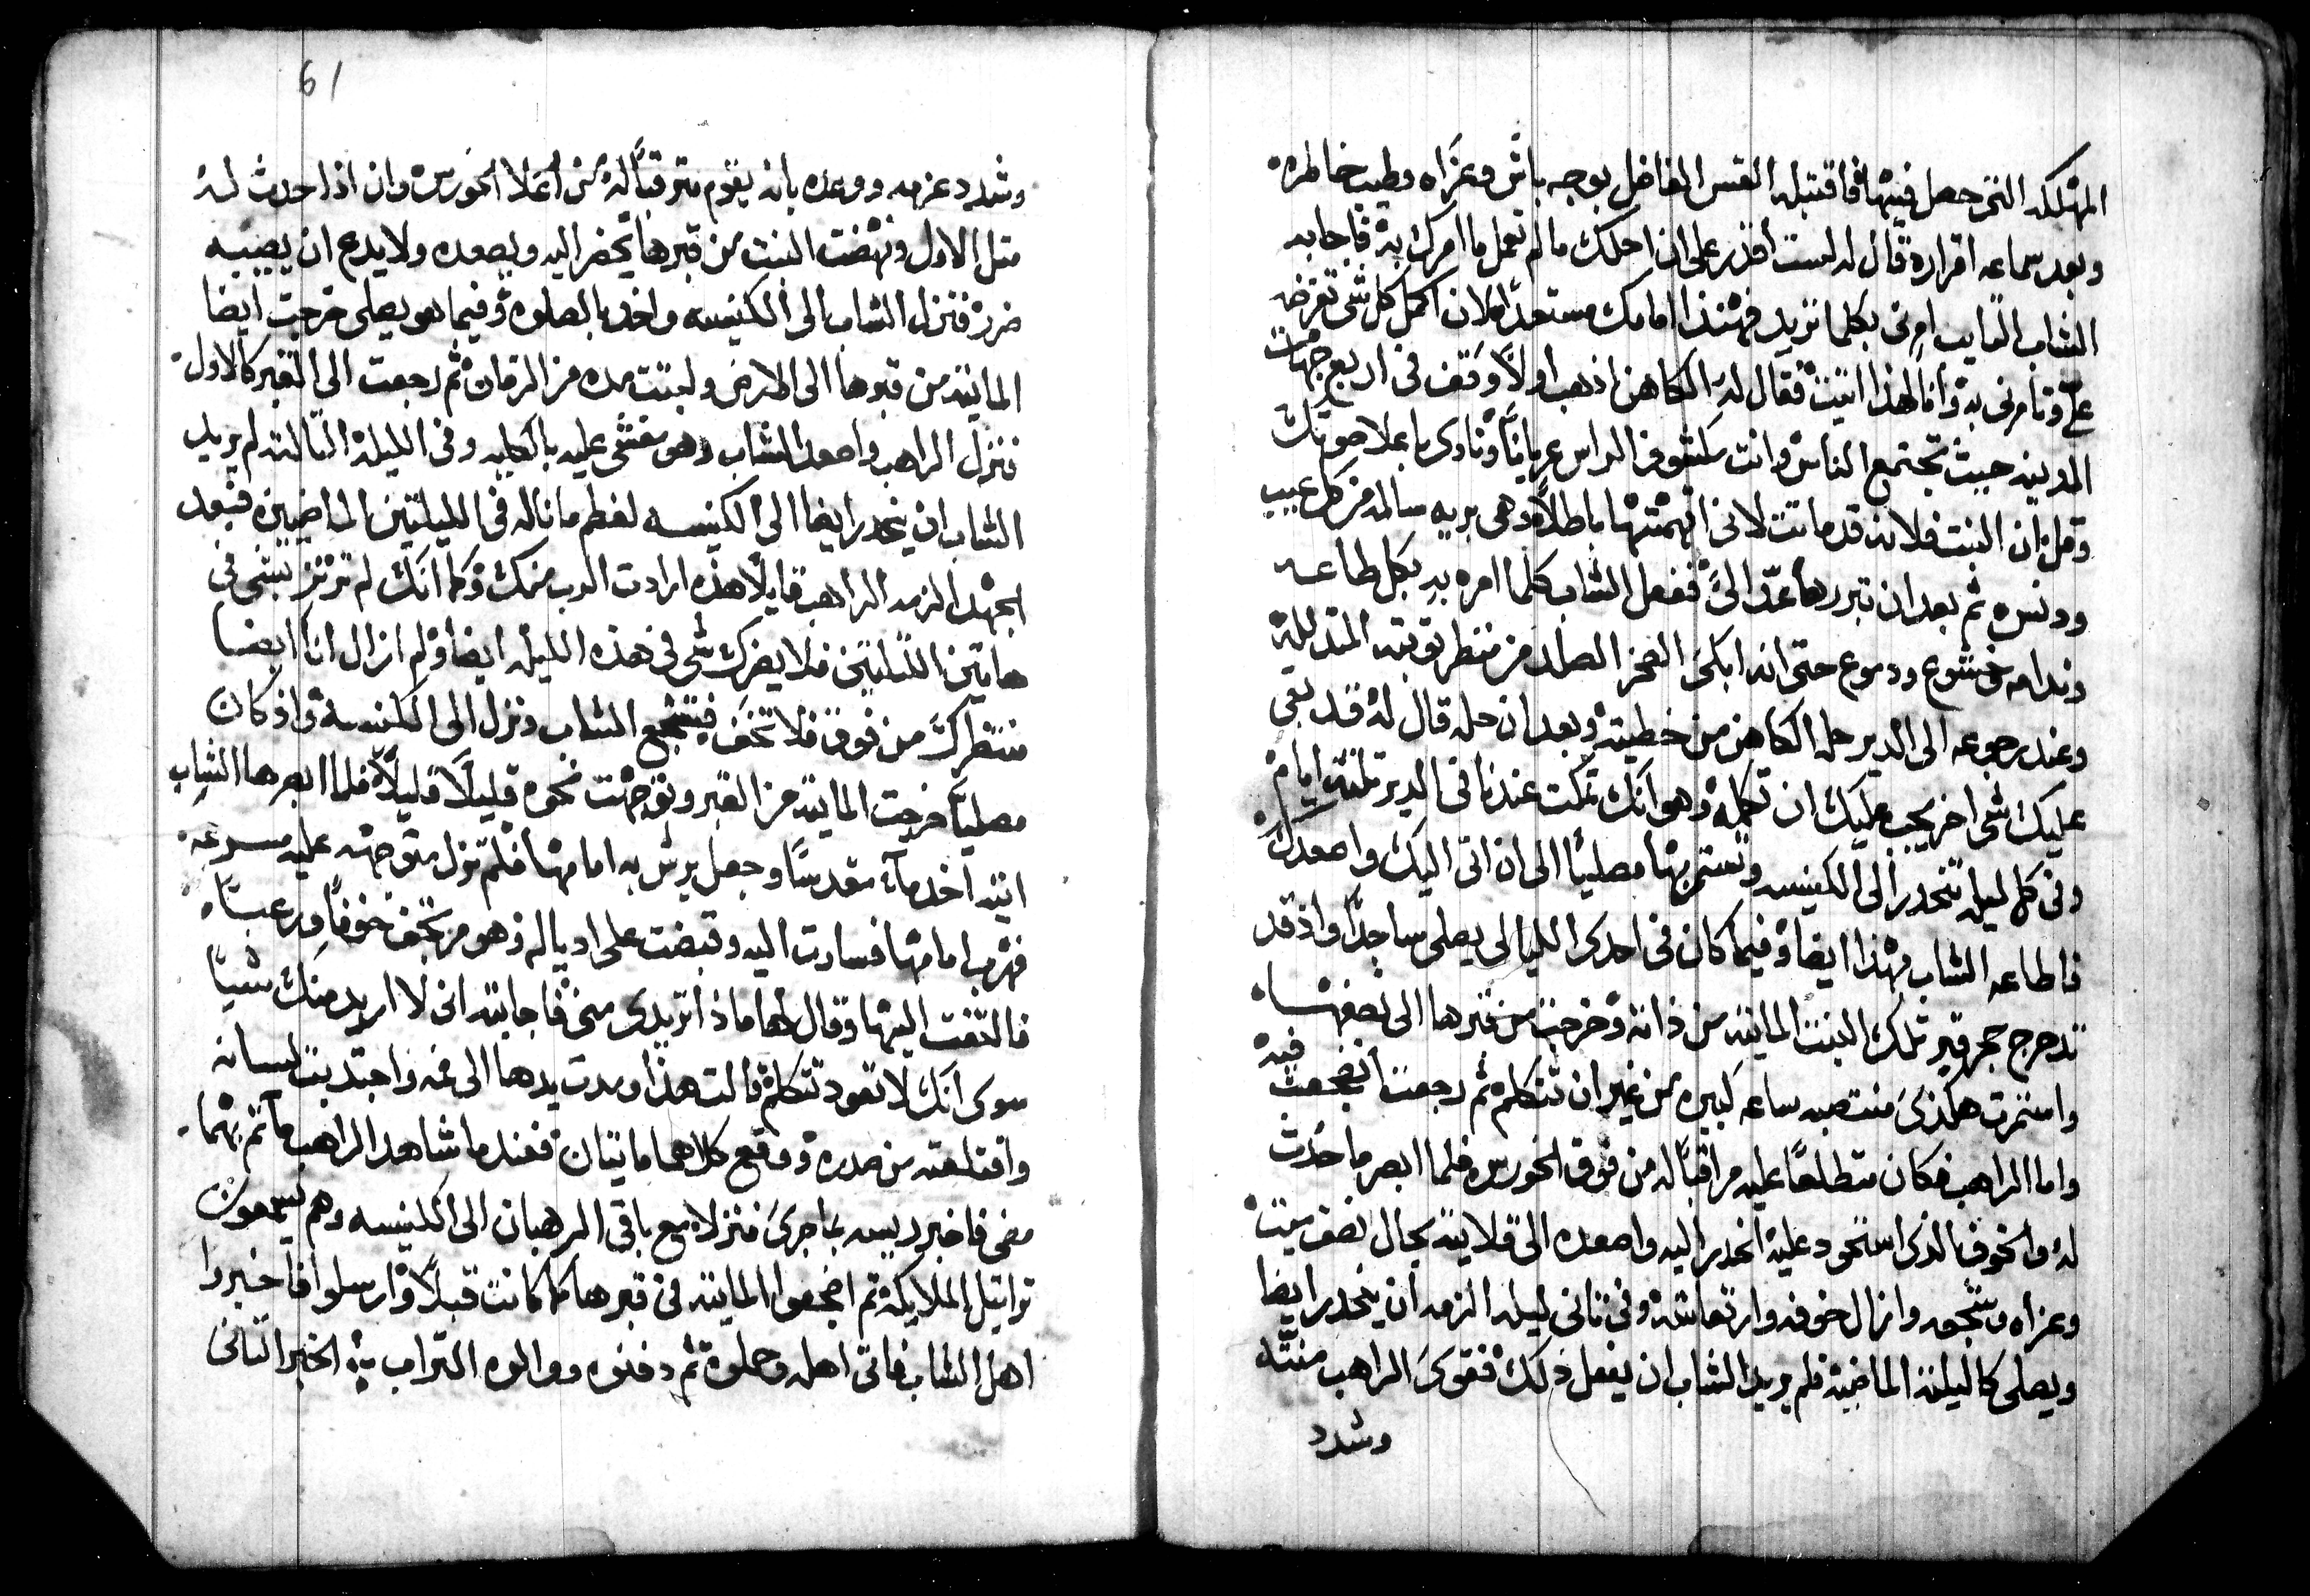 المهلكه التى حصل فيها فاقتبله القس الفاضل بوجه باش وعزاه وطيب خاطره
وبعد سماعه اقراره قال له لست أقدر على ان احلك مالم تعمل ما امرك به فاجابه
الشاب التايب امرنى بكلما تريد فهنذا امامك مستعدًا لان اكمل كل شى تفرضه
علىّ وتامرنى به وأنا لهذا اتيت فقال له الكاهن اذهب اولًا وقف فى اربع جهات
المدينه حيث تجتمع الناس وانت مكشوف الراس عريانًا ونادى باعلا صوتك
وقل ان البنت فلانه قد ماتت لانى اتهمتها باطلًا وهى بريه سالمه من كل عيب
ودنس ثم بعد ان تبررها عدّ الىّ ففعل الشاب كلما امره به بكل طاعه
وندامه خشوع ودموع حتى انه ابكى الصخر الصلد من منظر توبته المتدلله
وعند رجوعه الى الدير حله الكاهن من خطيته وبعد ان حله قال له قد بقى
عليك شى اخر يجب عليك ان تكمله وهو انك تمكث عندنا فى الدير تلتة ايام
وفى كل ليله تنحدر الى الكنيسه وتستمر بها مصليًا الى ان اتى اليك واصعدك
فاطاعه الشاب بهذا ايضا وفيما كان فى احدى الليالى يصلى ساجدًا واذ قد
تدحرج حجر قبر تلك البنت المايته من ذاته وخرجت من قبرها الى نصفها
واستمرت هكذى منتصبه ساعه كبيره من غير ان تتكلم ثم رجعت انضجعت فيه
واما الراهب فكان متطلعًا عليه مراقبًا له من فوق الخورس فلما ابصر ما حدث
له والخوف الذى استحود عليه انحدر اليه واصعده الى قلايته بحال نصف ميت
وعزاه وشجعه وازال خوفه وارتعاشه وفى تانى ليله الزمه ان ينحدر ايضا
ويصلى كالليلة الماضيه فلم يريد الشاب ان يفعل ذلك فقوى الراهب منته
وشدد
61
وشدد عزمه ووعده بانه يقوم مترقبًا له من أعلا الخورس وان اذا حدث له
متل الاول ونهضت البنت من قبرها يحضر اليه ويصعده ولا يدع ان يصيبه
ضرر فنزل الشاب الى الكنيسه واخد بالصلوه وفيما هو يصلى خرجت ايضا
المايته من قبرها الى الارض ولبتت مده من الزمان ثم رجعت الى القبر كالاول
فنزل الراهب واصعد الشاب وهو مغشى عليه بالكليه وفى الليله التالته لم يريد
الشاب ان ينحدر ايضا الى الكنيسه لعظم ما ناله فى الليلتين الماضيين فبعد
الجهد الزمه الراهب قايلًا هذه ارادت الرب منك وكما انك لم ترتز بشى فى
هاتين الليلتين فلا يضرك شى فى هذه الليله ايضا ولم ازال انا ايضا
منتظرك من فوق فلا تخف فتشجع الشاب ونزل الى الكنيسه واذ كان
مصليًا خرجت المايته من القبر وتوجهت نحوه قليلًا قليلًا فلما ابصرها الشاب
اتيه اخد مآء مقدسًا وجعل يرش به امامها فلم تزل متوجهه عليه مسرعه
فهرب امامها فسارت اليه وقبضت على ادياله وهو مرتجف خوفًا ورعبًا
فالتفت اليها وقال لها ماذا تريدى منى فاجابته انى لا اريد منك شيًا
سوى انك لا تعود تتكلم قالت هذا ومدت يدها الى فمه واجتدبت لسانه
واقتلعته من صدره ووقع كلاهما مايتان فعندما شاهد الراهب ما تم بهما
مضى فاخبر رييسه بما جرى فنزلا مع باقى الرهبان الى الكنيسه وهم يسمعون
تراتيل الملايكه ثم اضجعوا المايته فى قبرها كما كانت قبلًا وارسلوا فاخبروا
اهل الشاب فاتى اهله وحملوه ثم دفنوه ووالوه التراب الخبر التانى